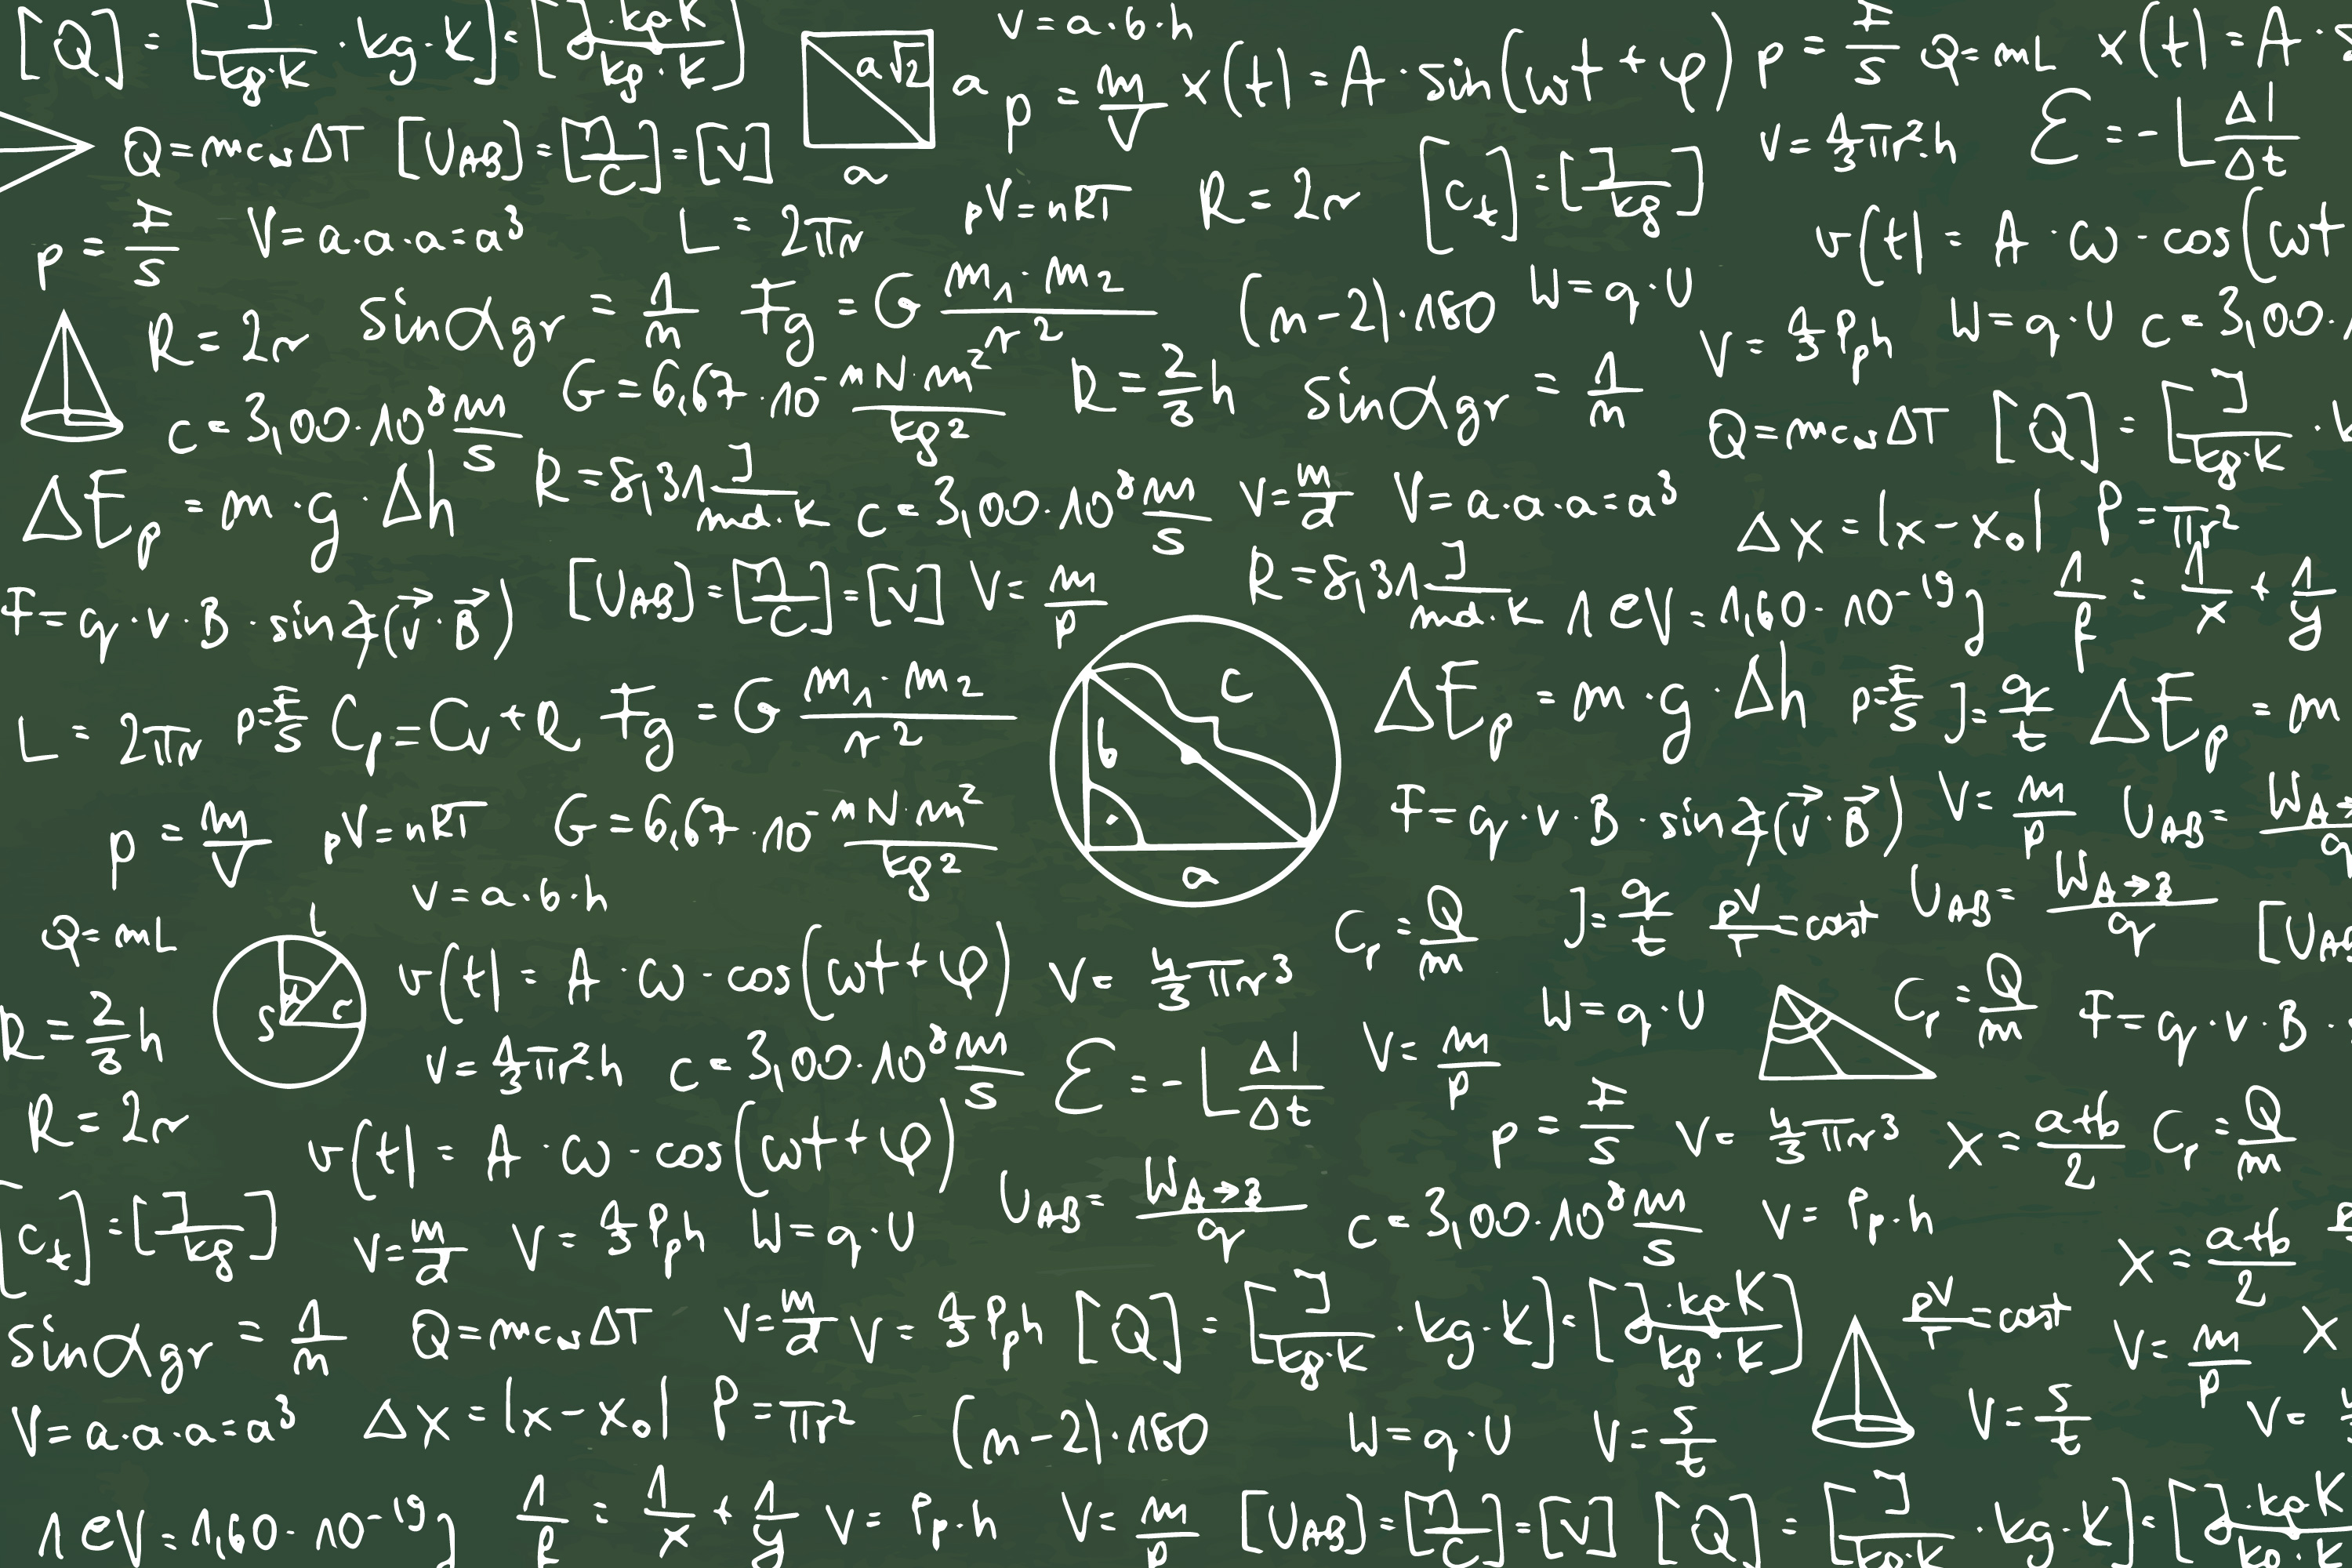 [Q] = [J/kg·K · kg·K] = [J·kg·K/kg·K] a√2 a v = a·b·h p = m/V x(t) = A · sin(ωt + φ) p = F/s Q = mL x(t) = A ·
Q = mcwΔT [UAB] = [J/C] = [V] a V = 4/3πr²·h ℰ = -L ΔI/Δt
p = F/s V = a·a·a = a³ L = 2πr pV = nRT R = 2r [ct] = [J/kg] v(t) = A · ω · cos(ωt
R = 2r sinαgr = 1/n Fg = G m1·m2/r² (n-2)·180 W = q·U V = 4/3 Pph W = q·U c = 3,00·
c = 3,00·10⁸ m/s G = 6,67·10⁻¹¹ N·m²/kg² R = 2/3 h sinαgr = 1/n Q = mcwΔT [Q] = [J/kg·K ·
ΔEp = m·g·Δh R = 8,31 J/mol·K c = 3,00·10⁸ m/s V = m/d V = a·a·a = a³ Δx = |x-x₀| P = πr²
F = q·v·B·sin∡(v⃗·B⃗) [UAB] = [J/C] = [V] V = m/p R = 8,31 J/mol·K 1eV = 1,60·10⁻¹⁹J 1/f = 1/x + 1/y
L = 2πr p = F/s Cp = Cv + R Fg = G m1·m2/r² b c ΔEp = m·g·Δh p = F/s J = q/t ΔEp = m
p = m/V pV = nRT G = 6,67·10⁻¹¹ N·m²/kg² a F = q·v·B·sin∡(v⃗·B⃗) V = m/p UAB = WA→
v = a·b·h
Q = mL l Cr = Q/m J = q/t pV/T = const UAB = WA→B/q [UAB
S α r v(t) = A · ω · cos(ωt + φ) V = 4/3πr³ W = q·U Cr = Q/m F = q·v·B·
R = 2/3 h V = 4/3πr²·h c = 3,00·10⁸ m/s ℰ = -L ΔI/Δt V = m/p
R = 2r v(t) = A · ω · cos(ωt + φ) p = F/s V = 4/3πr³ x = a+b/2 Cr = Q/m
[ct] = [J/kg] V = m/d V = 4/3 Pph W = q·U UAB = WA→B/q c = 3,00·10⁸ m/s V = Pp·h x = a+b/2
sinαgr = 1/n Q = mcwΔT V = m/d V = 4/3 Pph [Q] = [J/kg·K · kg·K] = [J·kg·K/kg·K] pV/T = const V = m/p x
V = a·a·a = a³ Δx = |x-x₀| P = πr² (n-2)·180 W = q·U V = s/t V = s/t V =
1eV = 1,60·10⁻¹⁹J 1/f = 1/x + 1/y V = Pp·h V = m/p [UAB] = [J/C] = [V] [Q] = [J/kg·K · kg·K] = [J·kg·K/kg·K